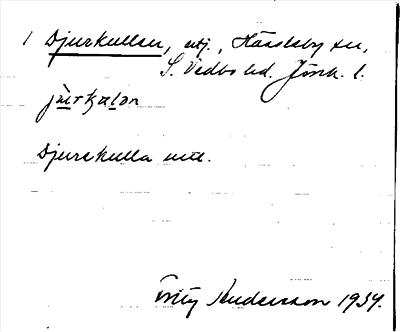 1 Djurkullen, utj., Hässleby sn,
S. Vedbo hd. Jönk. l.
Djurekulla
Fritz Andersson 1934.